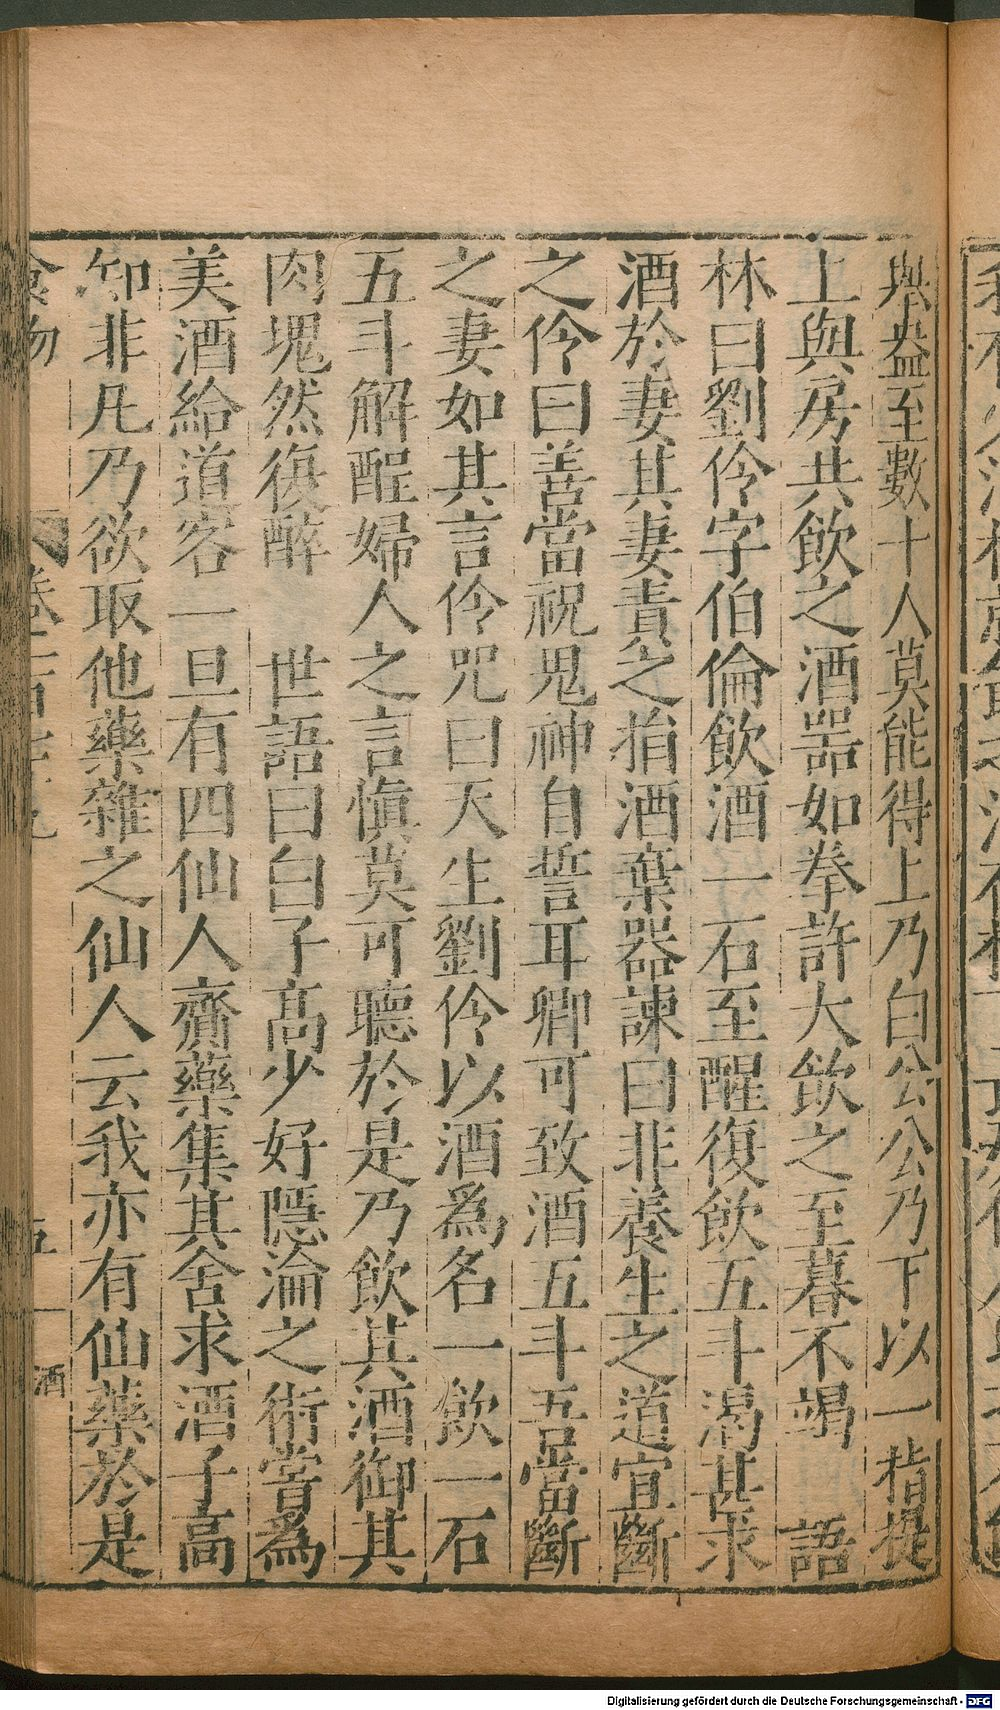 拱盎至數十人莫能得上乃白公公乃下以一指提
上與房共飲之酒器如拳許大飲之至暮不竭　語
林曰劉伶字伯倫飲酒一石至醒復飲五斗渴甚求
酒於妻其妻責之捐酒棄器諫曰非養生之道宜斷
之伶曰善當祝鬼神自誓耳卿可致酒五斗吾當斷
之妻如其言伶咒曰天生劉伶以酒爲名一飲一石
五斗解酲婦人之言慎莫可聽於是乃飲其酒御其
肉塊然復醉　世語曰白子高少好隱淪之術嘗爲
美酒給道客一旦有四仙人齎藥集其舍求酒子高
知非凡乃欲取他藥雜之仙人云我亦有仙藥於是
食物
五
酒
Digitalisierung gefördert durch die Deutsche Forschungsgemeinschaft - DFG